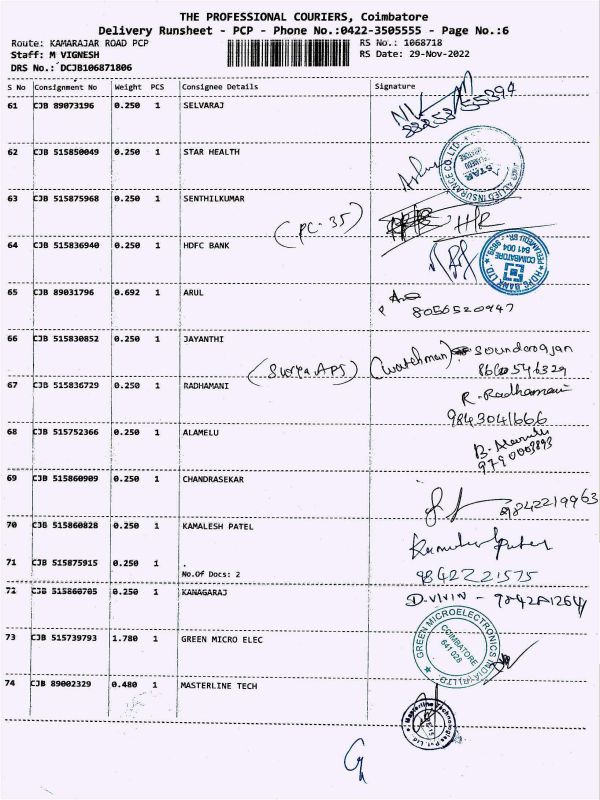 THE PROFESSIONAL COURIERS, Coimbatore
Delivery Runsheet - PCP - Phone No.:0422-3505555 - Page No.:6
Route: KAMARAJAR ROAD PCP RS No.: 1068718
Staff: M VIGNESH RS Date: 29-Nov-2022
DRS No.: DCJB106871806
S No Consignment No Weight PCS Consignee Details Signature
61 CJB 89073196 0.250 1 SELVARAJ
62 CJB 515850049 0.250 1 STAR HEALTH
63 CJB 515875968 0.250 1 SENTHILKUMAR
(PC-35) HR
64 CJB 515836940 0.250 1 HDFC BANK
HDFC BANK LTD.
COIMBATORE
641 004
65 CJB 89031796 0.692 1 ARUL
8056520947
66 CJB 515830852 0.250 1 JAYANTHI
(Surya APS) (Watchman) Soundarajan
67 CJB 515836729 0.250 1 RADHAMANI R. Radhamani
9843041666
68 CJB 515752366 0.250 1 ALAMELU B. Alamelu
9790003893
69 CJB 515860909 0.250 1 CHANDRASEKAR
9842219963
70 CJB 515860828 0.250 1 KAMALESH PATEL Kamalesh Patel
71 CJB 515875915 0.250 1 .
No.Of Docs: 2 9842221575
72 CJB 515860705 0.250 1 KANAGARAJ D.VIVIN -
73 CJB 515739793 1.780 1 GREEN MICRO ELEC
GREEN MICROELECTRONICS
COIMBATORE
641 028
74 CJB 89002329 0.480 1 MASTERLINE TECH
Masterline Technologies Pvt. Ltd.